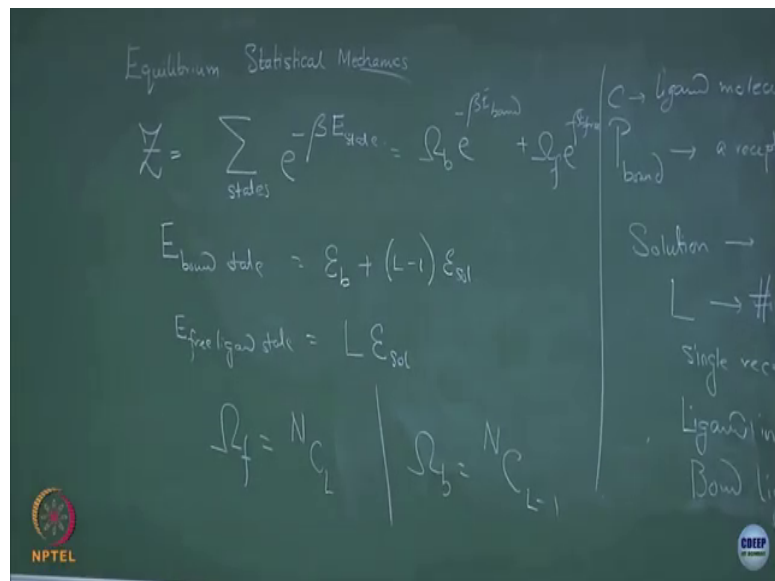 Equilibrium Statistical Mechanics
Z = Σ_states e^{-βE_state} = Ω_b e^{-βE_bound} + Ω_f e^{-βE_free}
E_bound state = ε_b + (L-1) ε_sol
E_free ligand state = L ε_sol
Ω_f = ^N C_L | Ω_b = ^N C_{L-1}
C → ligand
P_bound → a
Solution →
L → #
Single
Ligand in
Bound
NPTEL
CDEEP
IIT BOMBAY